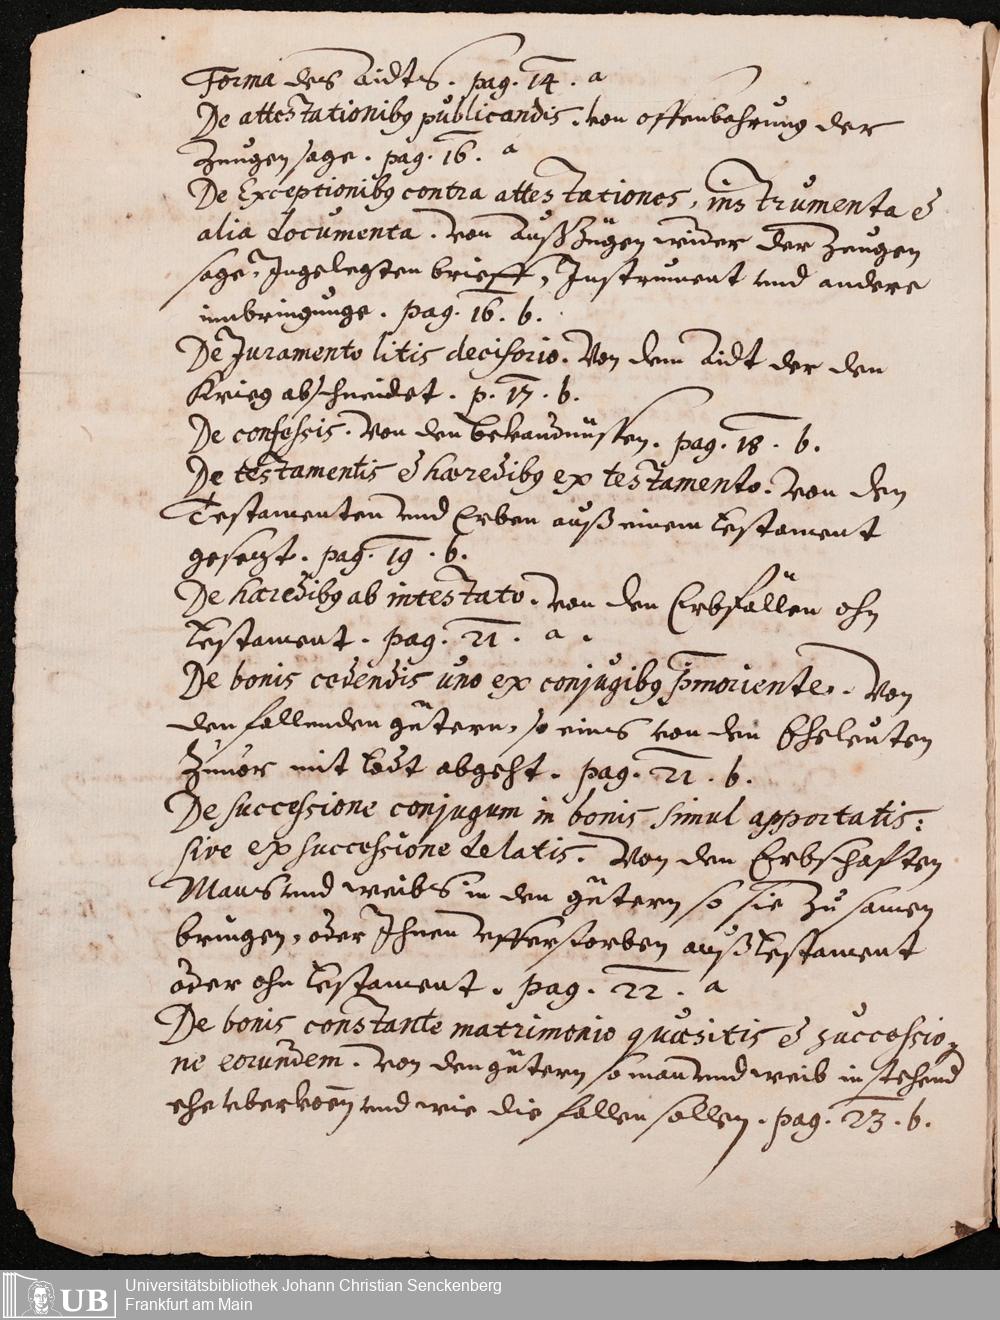 Forma des Aidts. pag. 14. a
De attestationibꝰ publicandis. von offenbahrung der
Zeugen sage. pag. 16. a
De Exceptionibꝰ contra attestationes, instrumenta &
alia Documenta. Von Außzügen wider der Zeugen
sage, Ingelegten brieff, Instrument und andere
innbringunge. pag. 16. b.
De Juramento litis decisorio. Von dem Aidt der den
Krieg abschneidet. p. 17. b.
De confessis. Von den bekandnüssen. pag. 18. b.
De testamentis & hæredibꝰ ex testamento. Von den
Testamenten und Erben auß einem testament
gesetzt. pag. 19. b.
De hæredibꝰ ab intestato. von den Erbfällen ohn
testament. pag. 21. a.
De bonis cedendis uno ex conjugibꝰ p̄moriente. Von
den fallenden gütern, so eins von den Eheleuten
zuuor mit todt abgeht. pag. 21. b.
De successione conjugum in bonis simul apportatis:
sive ex successione delatis. Von den Erbschafften
Mans und weibs in den gütern so sie zu samen
bringen, oder Ihnen erstorben auß testament
oder ohn testament. pag. 22. a
De bonis constante matrimonio quæsitis & successio,
ne eorundem. Von den gütern so man und weib in stehend
ehe überkoen und wie die fallen sollen. pag. 23. b.
UB
Universitätsbibliothek Johann Christian Senckenberg
Frankfurt am Main